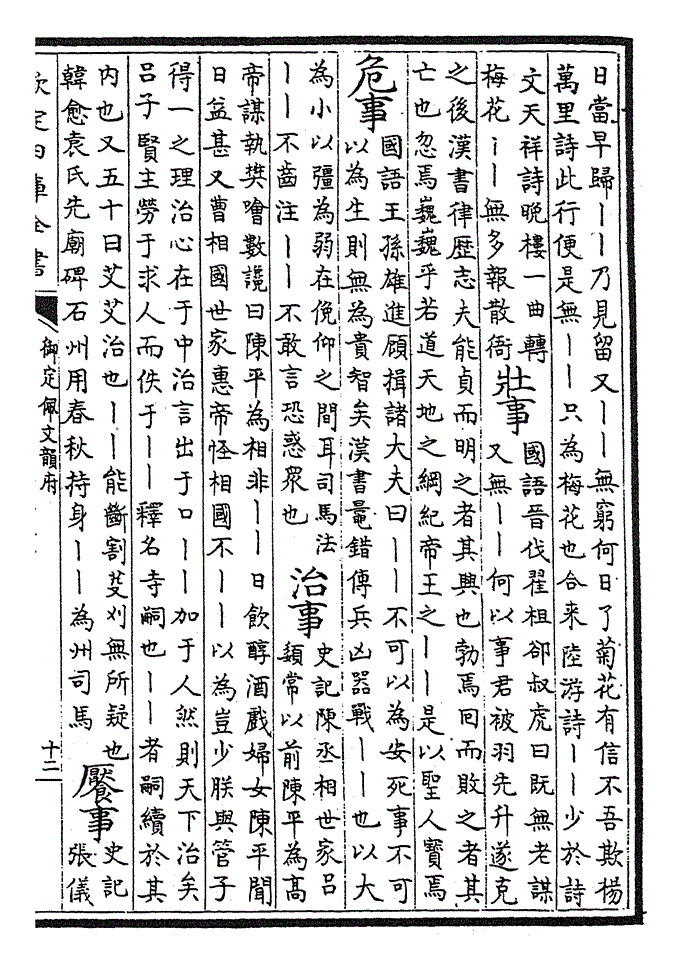 日當早歸丨丨乃見留又丨丨無窮何日了菊花有信不吾欺楊
萬里詩此行便是無丨丨只為梅花也合来陸游詩丨丨少於詩
文天祥詩晚樓一曲轉
梅花丨丨無多報散衙
壯事
國語晉伐翟柤卻叔虎曰既無老謀
又無丨丨何以事君被羽先升遂克
之後漢書律歴志夫能貞而明之者其興也勃焉囘而敗之者其
亡也忽焉巍巍乎若道天地之綱紀帝王之丨丨是以聖人寳焉
危事
國語王孫雄進顧揖諸大夫曰丨丨不可以為安死事不可
以為生則無為貴智矣漢書鼂錯傳兵凶器戰丨丨也以大
為小以彊為弱在俛仰之間耳司馬法
丨丨不齒注丨丨不敢言恐惑眾也
治事
史記陳丞相世家吕
嬃常以前陳平為高
帝謀執樊噲數讒曰陳平為相非丨丨日飲醇酒戲婦女陳平聞
日益甚又曹相國世家惠帝怪相國不丨丨以為豈少朕與管子
得一之理治心在于中治言出于口丨丨加于人然則天下治矣
吕子賢主勞于求人而佚于丨丨釋名寺嗣也丨丨者嗣續於其
内也又五十曰艾艾治也丨丨能斷割芟刈無所疑也
韓愈袁氏先廟碑石州用春秋持身丨丨為州司馬
饜事
史記
張儀
欽定四庫全書
御定佩文韻府
十二